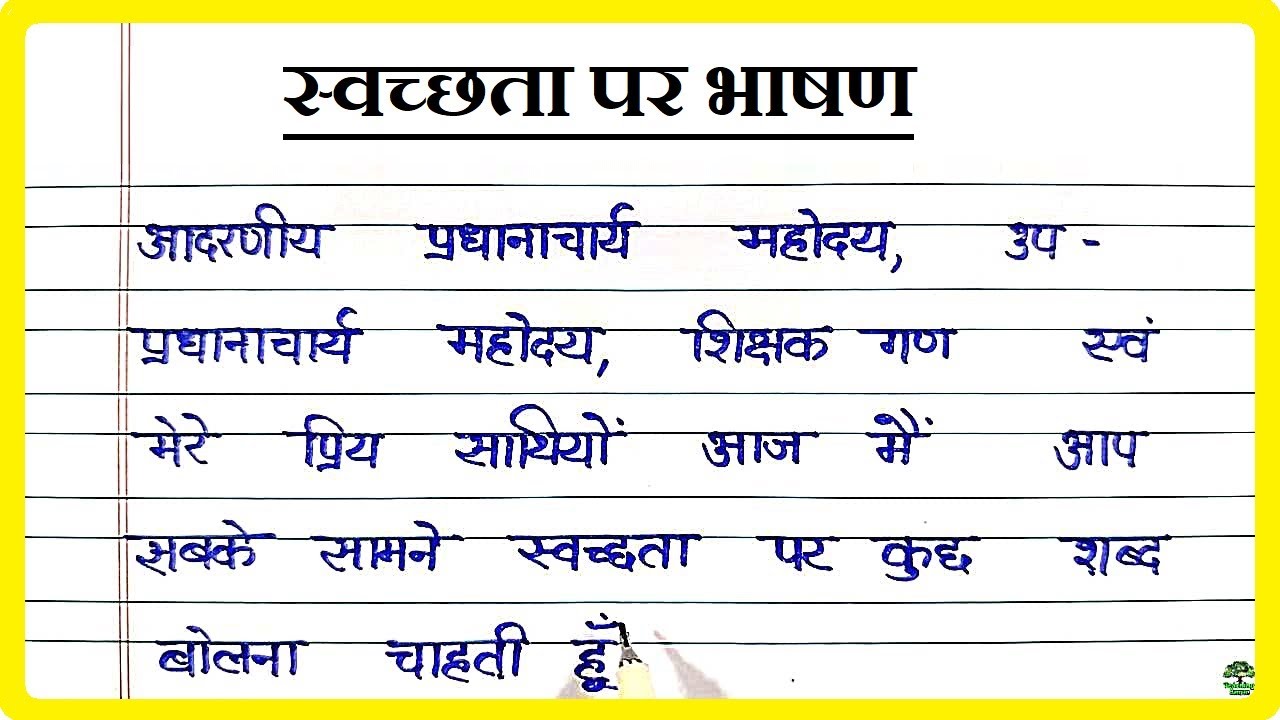 स्वच्छता पर भाषण
आदरणीय प्रधानाचार्य महोदय, उप -
प्रधानाचार्य महोदय, शिक्षक गण एवं
मेरे प्रिय साथियों आज मैं आप
सबके सामने स्वच्छता पर कुछ शब्द
बोलना चाहती हूँ